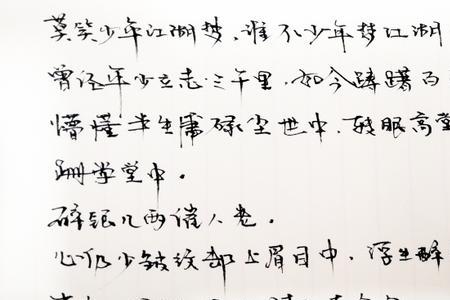 莫笑少年江湖梦,谁不少年梦江湖
曾经年少立志三千里,如今踌躇百
懵懂半生庸碌尘世中,转眼高堂
学堂中。
碎银几两催人老。
心仍少皱纹却上眉目中,浮生醉